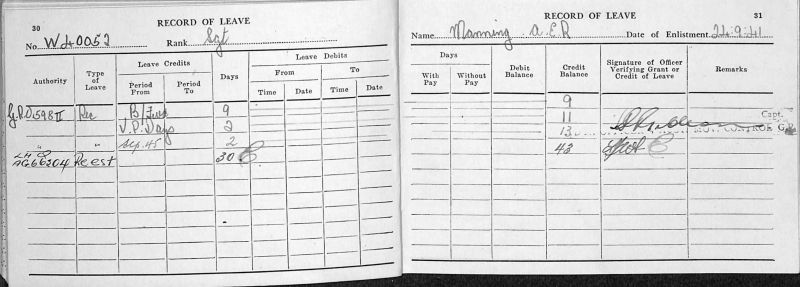 30
RECORD OF LEAVE
No. W40052 Rank Sgt
Authority
Type of Leave
Leave Credits
Period From
Period To
Days
Leave Debits
From
To
Time
Date
Time
Date
G.R.O. 598 II Rec B/Fwd 9
V.P. Days 2
" " Sep. 45 2
LHQ
AG66204 Re est 30
RECORD OF LEAVE
31
Name Manning A.E.R Date of Enlistment 24.9.41
Days
With Pay
Without Pay
Debit Balance
Credit Balance
Signature of Officer Verifying Grant or Credit of Leave
Remarks
9
11 Capt.
13 MOV. CONTROL
43